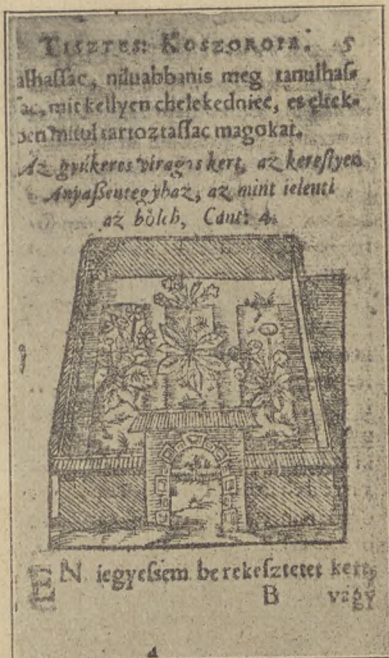 TISZTES: KOSZOROIA. 5
alhassac, niluabbanis meg tanulhas-
sac, mit kellyen chelekedniec, es ettek-
ben mitul tartoztassac magokat.
Az gyükeres viragos kert, az kerestyen
Anyaßentegyhaz, az mint ielenti
az bölch, Cant: 4.
EN iegyessem be rekesztetet kert,
B vagy